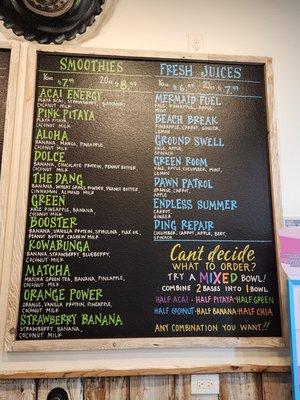 SMOOTHIES
16oz $7.49 20oz $8.99
ACAI ENERGY
MAYA ACAI, STRAWBERRY, BANANA,
COCONUT MILK
PINK PITAYA
PITAYA, BANANA,
COCONUT MILK
ALOHA
BANANA, MANGO, PINEAPPLE,
COCONUT MILK
DOLCE
BANANA, CHOCOLATE PROTEIN, PEANUT BUTTER,
COCONUT MILK
THE DANG
BANANA, WHEAT GRASS POWDER, PEANUT BUTTER,
CINNAMON, ALMOND MILK
GREEN
KALE, PINEAPPLE, BANANA,
COCONUT MILK
BOOSTER
BANANA, VANILLA PROTEIN, SPIRULINA, FLAX OIL,
PEANUT BUTTER, CASHEW MILK
KOWABUNGA
BANANA, STRAWBERRY, BLUEBERRY,
COCONUT MILK
MATCHA
MATCHA GREEN TEA, BANANA, PINEAPPLE,
COCONUT MILK
ORANGE POWER
ORANGE, VANILLA PROTEIN, PINEAPPLE,
COCONUT MILK
STRAWBERRY BANANA
STRAWBERRY, BANANA,
COCONUT MILK
FRESH JUICES
16oz $6.99 20oz $7.99
MERMAID FUEL
KALE, PINEAPPLE, APPLE,
MINT
BEACH BREAK
PINEAPPLE, CARROT, GINGER,
LEMON
GROUND SWELL
KALE, APPLE,
SPINACH
GREEN ROOM
KALE, APPLE, CUCUMBER, MINT,
LEMON
DAWN PATROL
ORANGE, CARROT,
APPLE
ENDLESS SUMMER
CARROT
GINGER
DING REPAIR
CUCUMBER, CARROT, APPLE, BEET,
SPINACH
Can't decide
WHAT TO ORDER?
TRY A MIXED BOWL!
COMBINE 2 BASES INTO 1 BOWL
HALF ACAI - HALF PITAYA - HALF GREEN
HALF COCONUT - HALF BANANA - HALF CHIA
ANY COMBINATION YOU WANT!!